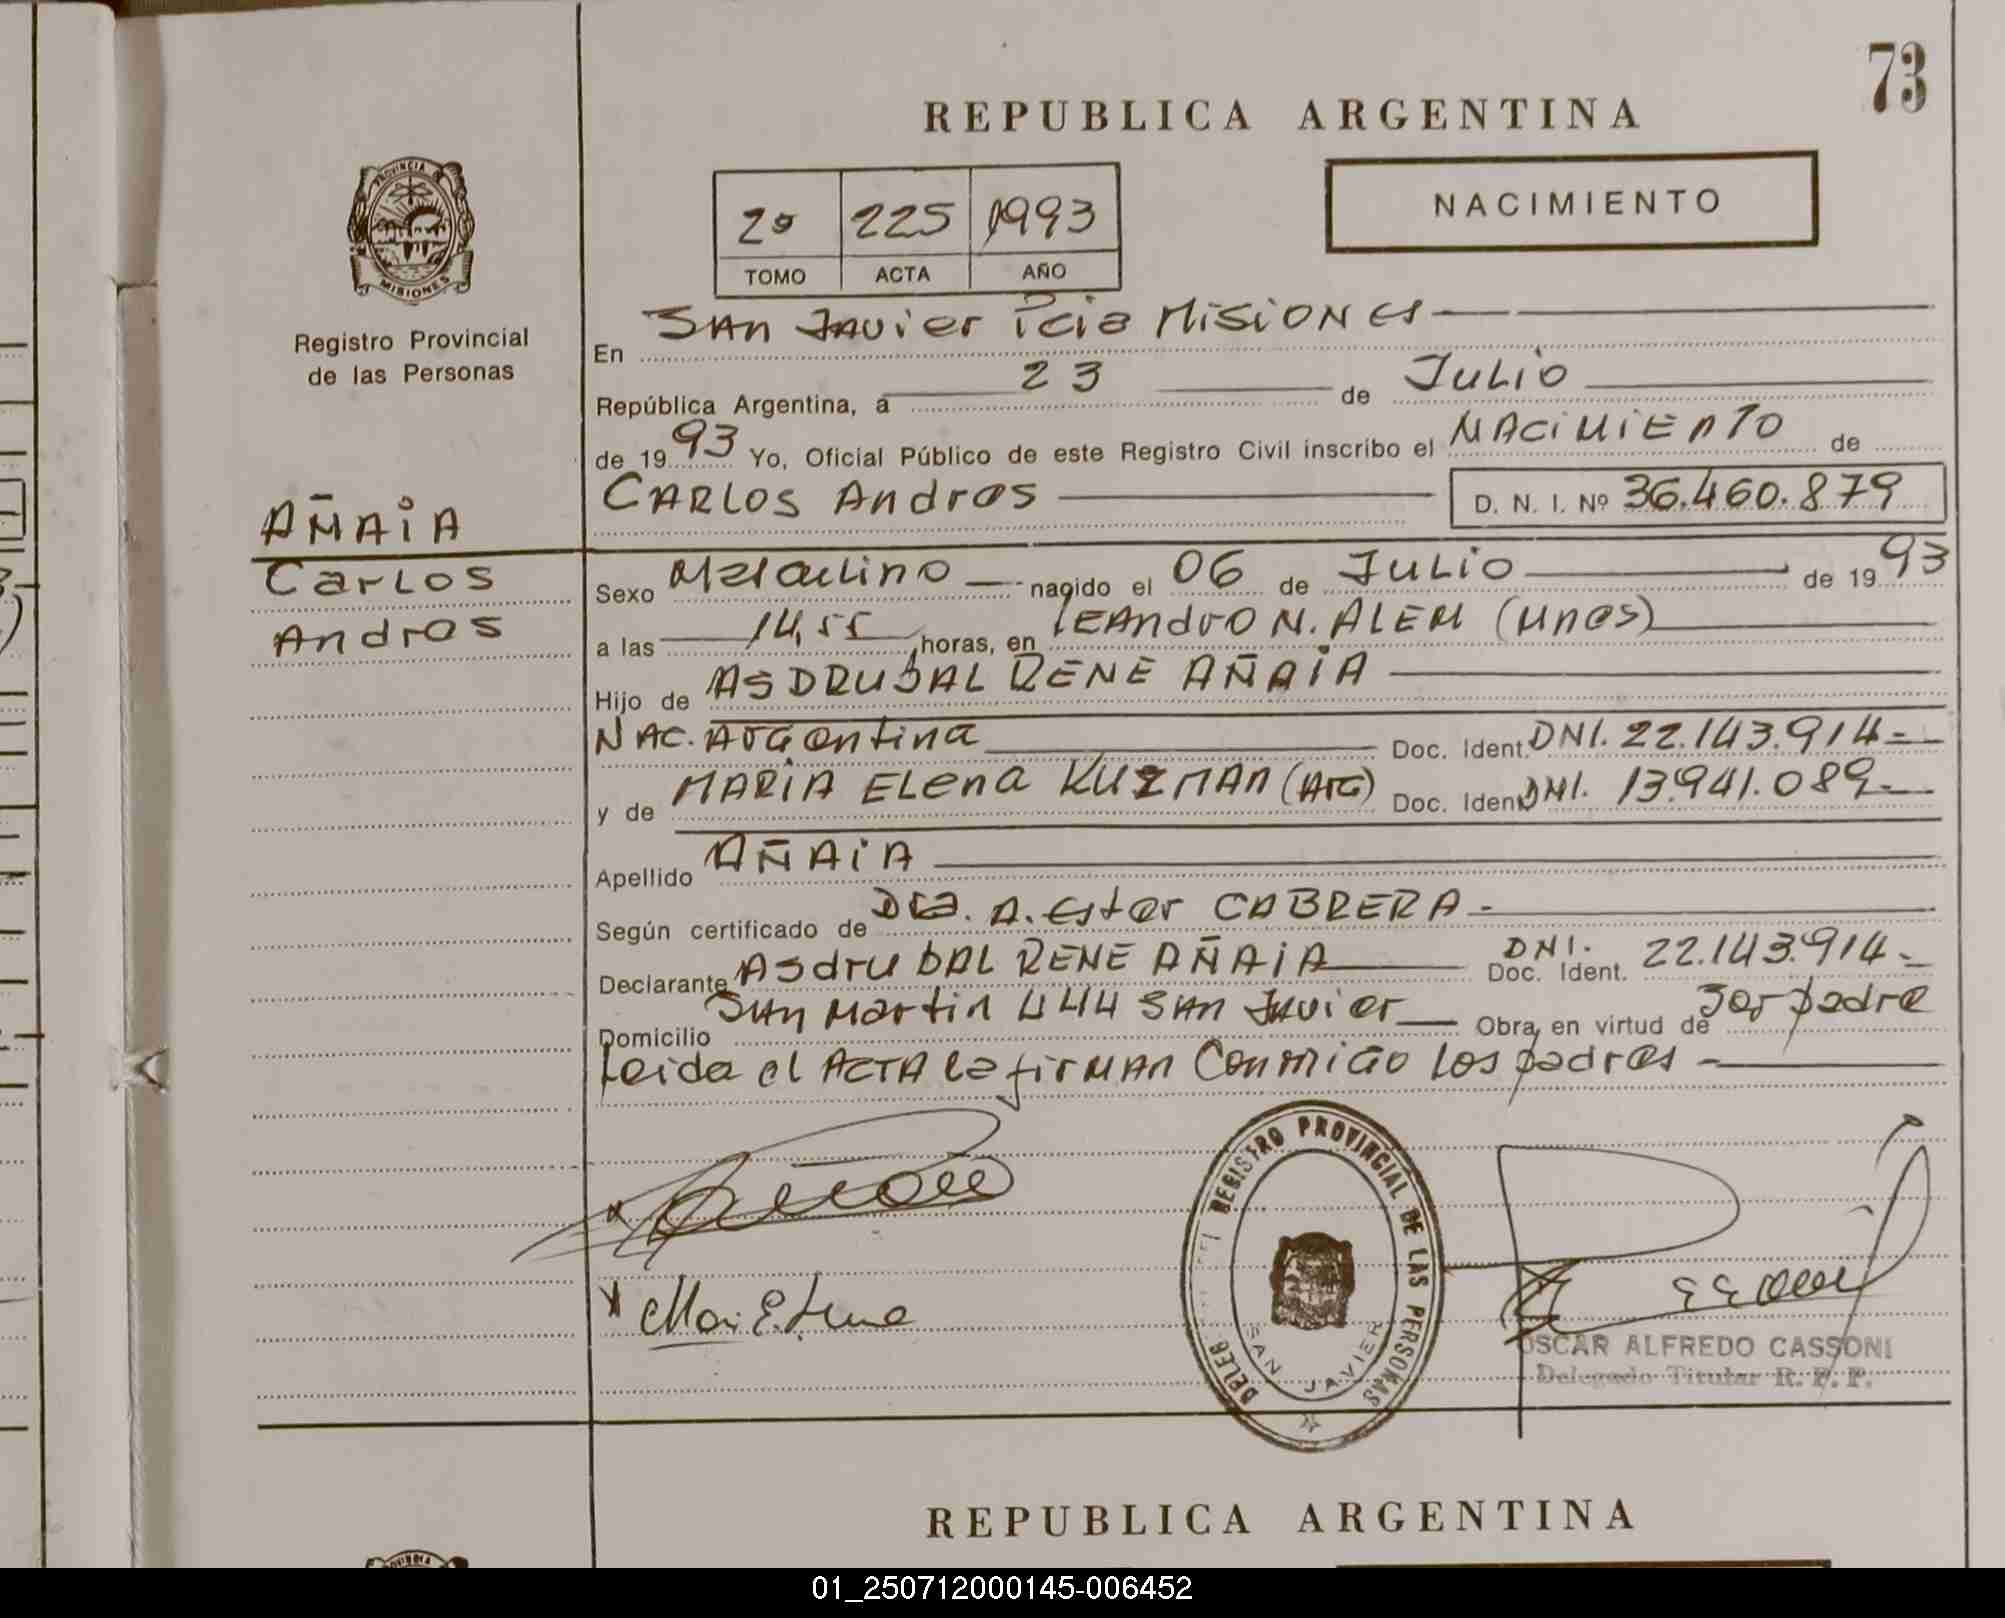 73
REPUBLICA ARGENTINA
2º 225 1993
TOMO ACTA AÑO
NACIMIENTO
PROVINCIA DE MISIONES
Registro Provincial
de las Personas
AÑAIA
Carlos
Andres
En San Javier Pcia Misiones
República Argentina, a 23 de Julio
de 1993 Yo, Oficial Público de este Registro Civil inscribo el Nacimiento de
Carlos Andres D. N. I. Nº 36.460.879
Sexo Masculino nacido el 06 de Julio de 1993
a las 14,55 horas, en Leandro N. Alem (Mnes)
Hijo de ASDRUBAL RENE AÑAIA
Nac. Argentina Doc. Ident. DNI. 22.143.914-
y de MARIA Elena KUZMAN (Arg) Doc. Ident. DNI. 13.941.089-
Apellido AÑAIA
Según certificado de Dra. A. Ester CABRERA-
Declarante Asdrubal RENE AÑAIA Doc. Ident. DNI. 22.143.914-
Domicilio San Martin 444 San Javier Obra, en virtud de Ser padre
Leida el ACTA la firman Conmigo los padres
REGISTRO PROVINCIAL DE LAS PERSONAS
SAN JAVIER
OSCAR ALFREDO CASSONI
Delegado Titular R. P. P.
REPUBLICA ARGENTINA
01_250712000145-006452